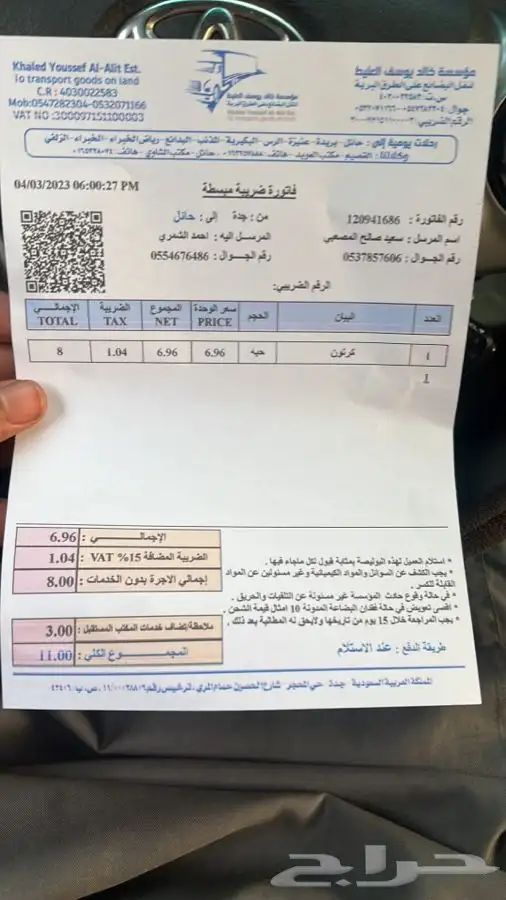 Khaled Youssef Al-Alit Est.
To transport goods on land
C.R : 4030022583
Mob:0547282304-0532071166
VAT NO :300097151100003
مؤسسة خالد يوسف العليط
لنقل البضائع على الطرق البرية
رحلات يومية إلى : حائل - بريدة - عنيزة - الرس - البكيرية - المذنب - البدائع - رياض الخبراء - الخبراء - الزلفي
04/03/2023 06:00:27 PM
فاتورة ضريبة مبسطة
رقم الفاتورة : 120941686
من : جدة إلى : حائل
اسم المرسل : سعيد صالح المصعبي
المرسل اليه : احمد الشمري
رقم الجوال : 0537857606
رقم الجوال : 0554676486
الرقم الضريبي:
العدد البيان الحجم سعر الوحدة المجموع الضريبة الاجمالـــي
PRICE NET TAX TOTAL
1 كرتون حبه 6.96 6.96 1.04 8
1
الإجمالـــي : 6.96
الضريبة المضافة 15% VAT : 1.04
إجمالي الاجرة بدون الخدمات : 8.00
ملاحظة/تضاف خدمات المكتب المستقبل : 3.00
المجمـــوع الكلي : 11.00
* استلام العميل لهذه البوليصة بمثابة قبول لكل ماجاء فيها .
* يجب الكشف عن السوائل والمواد الكيميائية وغير مسئولين عن المواد
القابلة للكسر .
* في حالة وقوع حادث المؤسسة غير مسئولة عن التلفيات والحريق .
* اقصى تعويض في حالة فقدان البضاعة المدونة 10 امثال قيمة الشحن .
* يجب المراجعة خلال 15 يوم من تاريخها ولايحق له المطالبة بعد ذلك .
طريقة الدفع : عند الاستلام
حراج